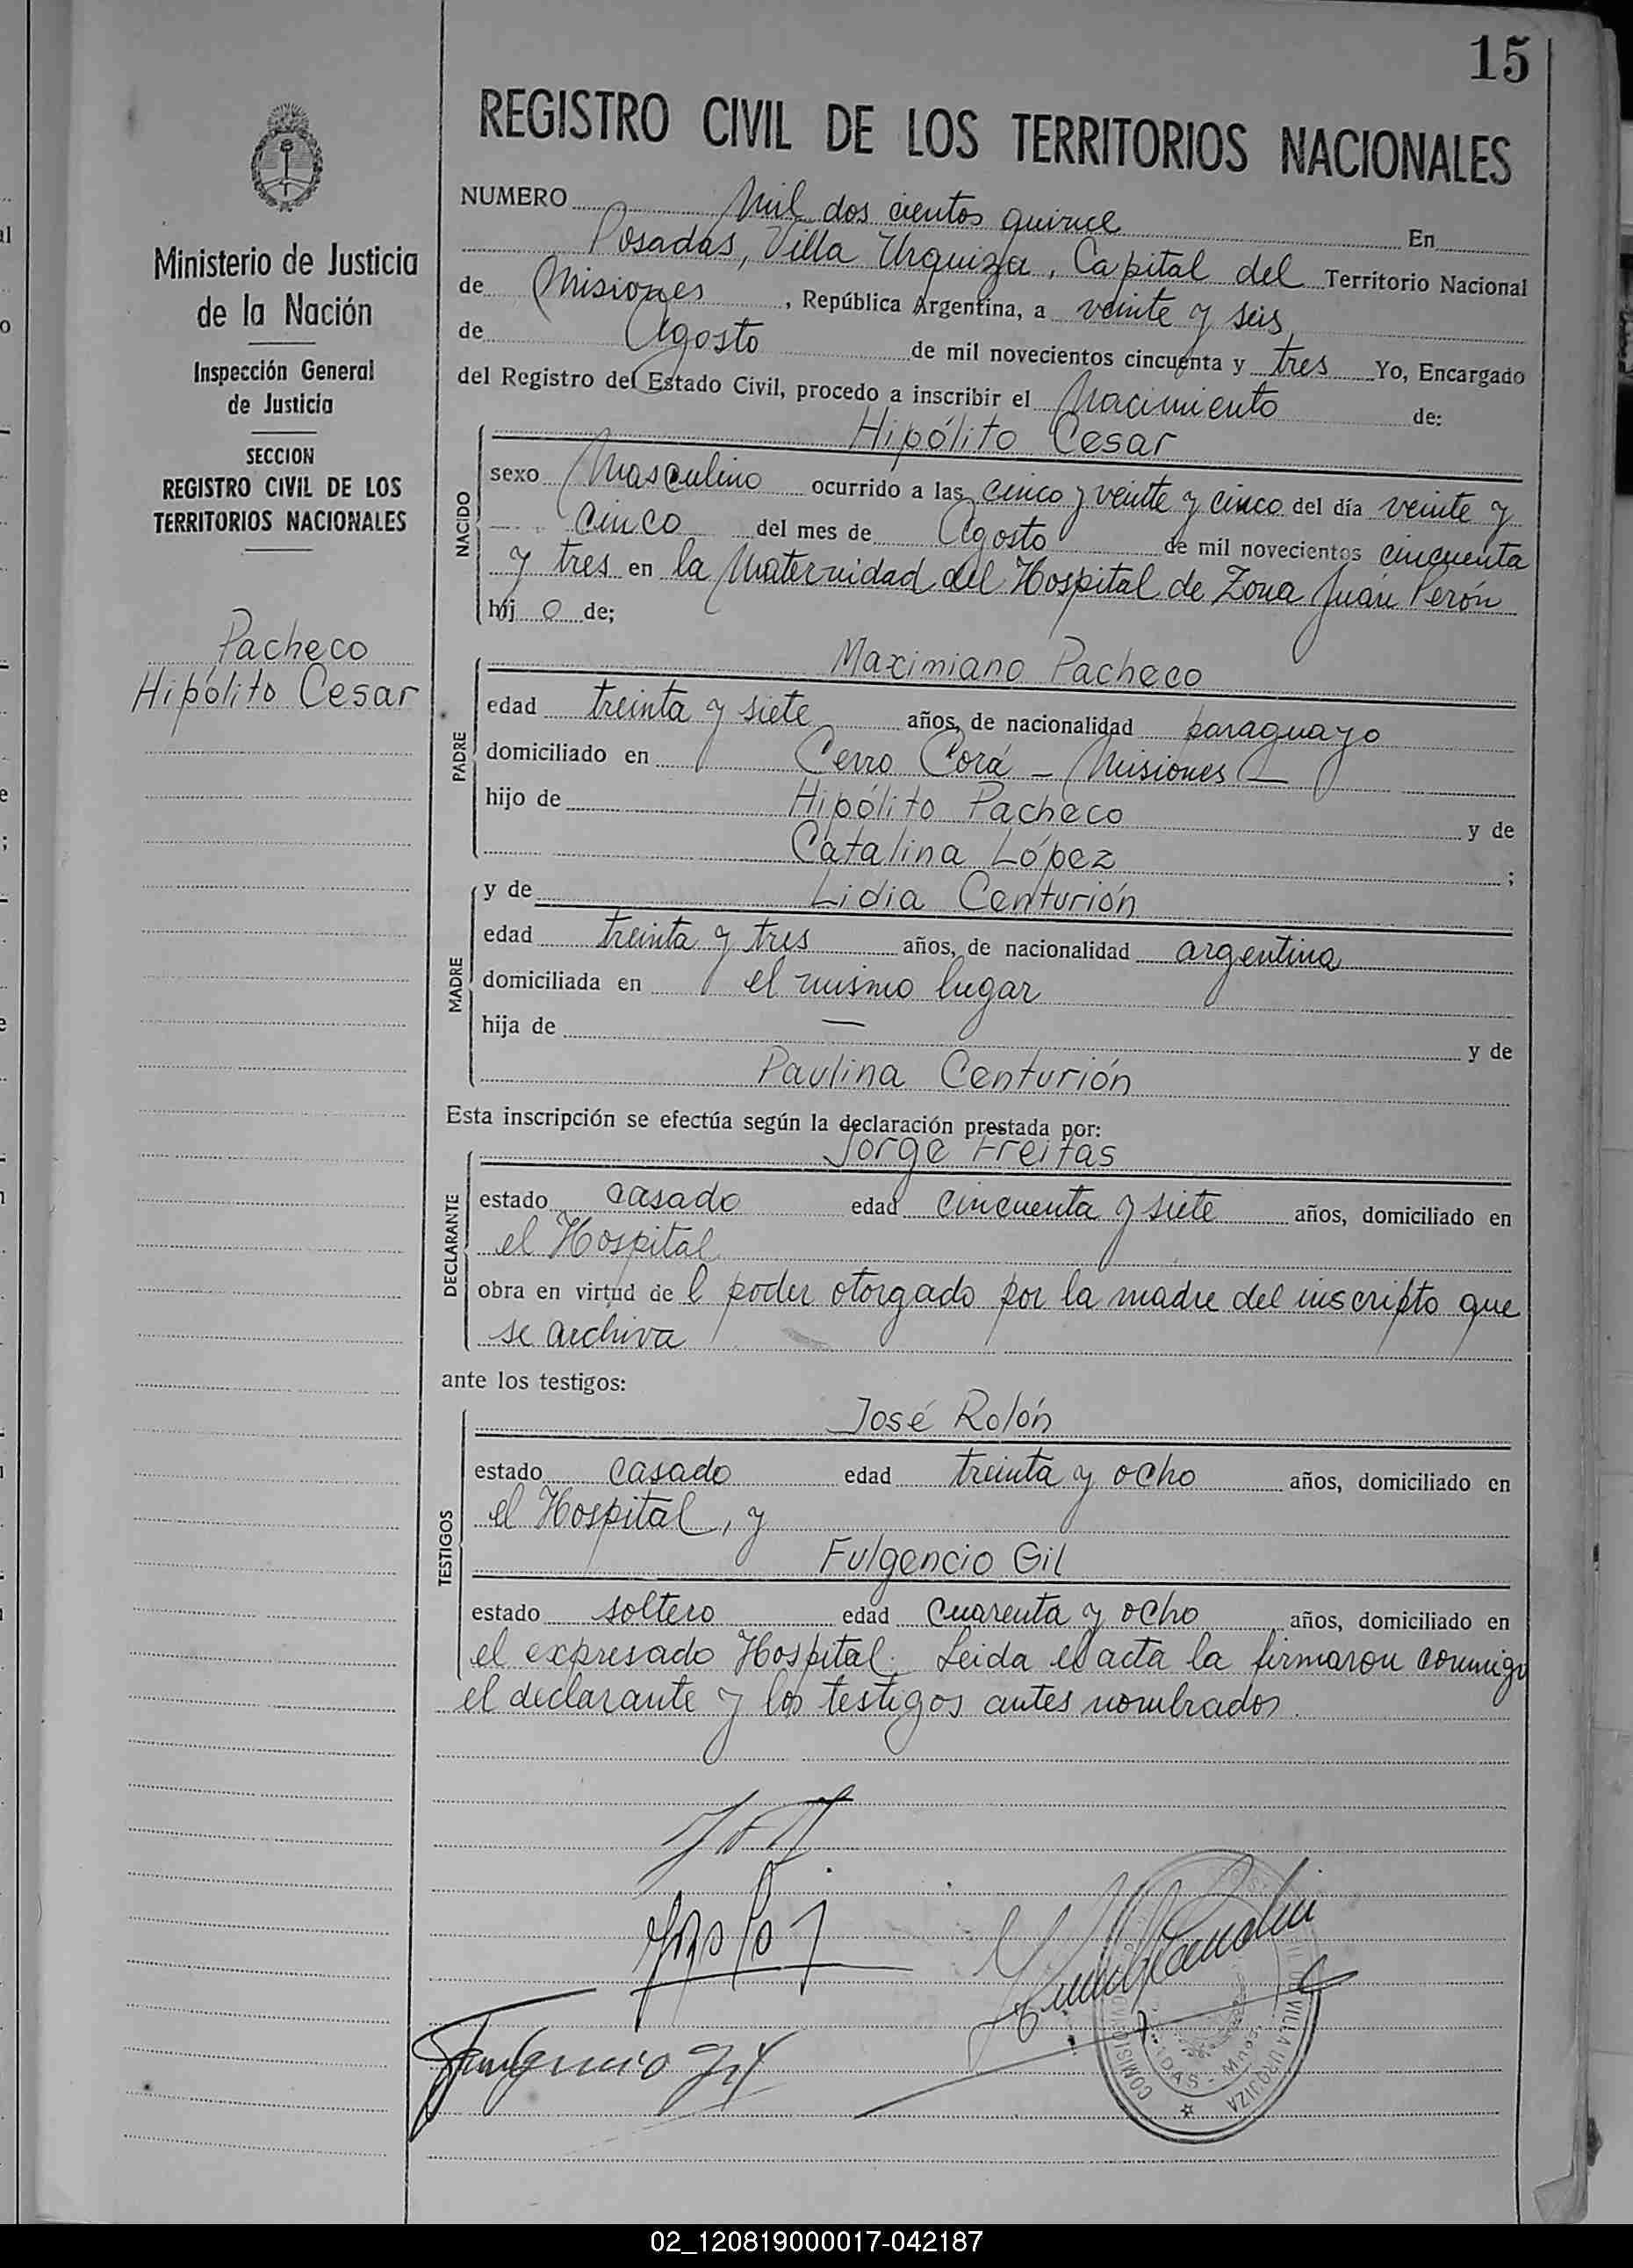 15
REGISTRO CIVIL DE LOS TERRITORIOS NACIONALES
Ministerio de Justicia
de la Nación
Inspección General
de Justicia
SECCION
REGISTRO CIVIL DE LOS
TERRITORIOS NACIONALES
Pacheco
Hipólito Cesar
NUMERO Mil dos cientos quince En
Posadas, Villa Urquiza, Capital del Territorio Nacional
de Misiones, República Argentina, a veinte y seis
de Agosto de mil novecientos cincuenta y tres Yo, Encargado
del Registro del Estado Civil, procedo a inscribir el Nacimiento de:
Hipólito Cesar
NACIDO
sexo Masculino ocurrido a las cinco y veinte y cinco del día veinte y
cinco del mes de Agosto de mil novecientos cincuenta
y tres en la Maternidad del Hospital de Zona Juan Perón
hijo de;
Maximiano Pacheco
PADRE
edad treinta y siete años, de nacionalidad paraguayo
domiciliado en Cerro Corá - Misiones -
hijo de Hipólito Pacheco y de
Catalina López ;
y de Lidia Centurión
MADRE
edad treinta y tres años, de nacionalidad argentina
domiciliada en el mismo lugar
hija de — y de
Paulina Centurión
Esta inscripción se efectúa según la declaración prestada por:
Jorge Freitas
DECLARANTE
estado casado edad cincuenta y siete años, domiciliado en
el Hospital
obra en virtud de l poder otorgado por la madre del inscripto que
se archiva
ante los testigos:
José Rolón
TESTIGOS
estado casado edad treinta y ocho años, domiciliado en
el Hospital, y
Fulgencio Gil
estado soltero edad cuarenta y ocho años, domiciliado en
el expresado Hospital. Leida el acta la firmaron conmigo
el declarante y los testigos antes nombrados.
Fulgencio Gil
VILLA URQUIZA
02_120819000017-042187